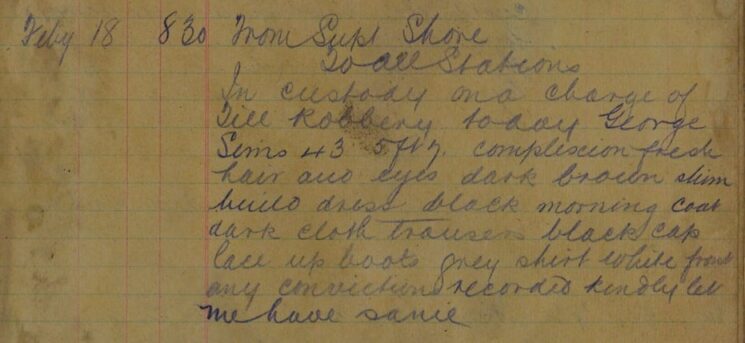 Feby 18 830 From Supt Shore
To all Stations
In custody on a charge of
Till Robbery today George
Sims 43 5ft 7 complexion fresh
hair and eyes dark brown slim
build dress black morning coat
dark cloth trousers black cap
lace up boots grey shirt white front
any convictions recorded kindly let
me have same